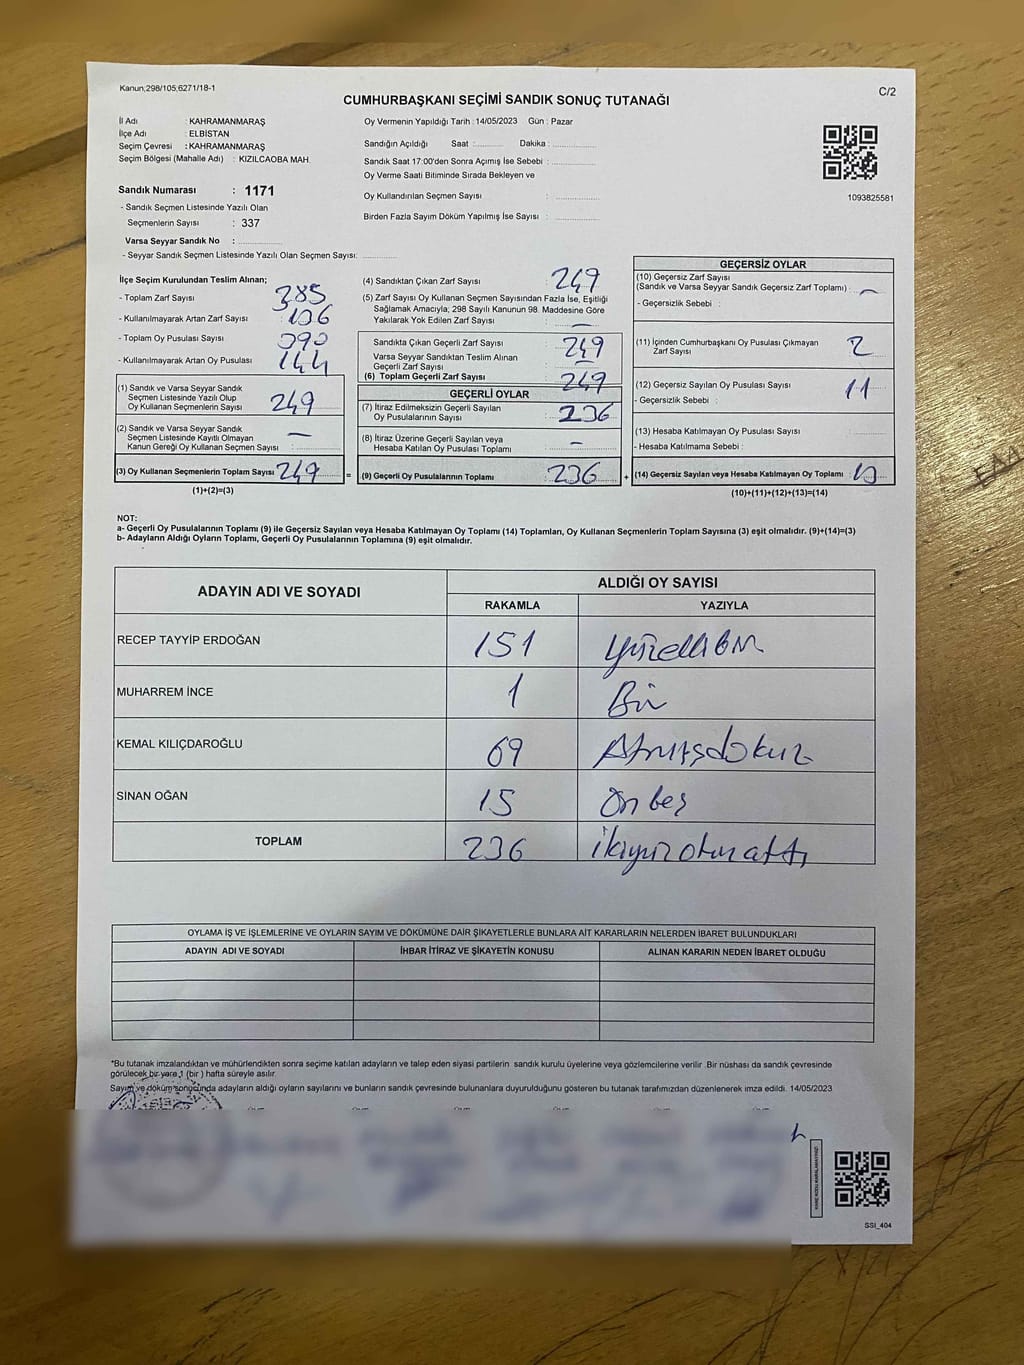 Kanun,298/105,6271/18-1
C/2
CUMHURBAŞKANI SEÇİMİ SANDIK SONUÇ TUTANAĞI
İl Adı : KAHRAMANMARAŞ
İlçe Adı : ELBİSTAN
Seçim Çevresi : KAHRAMANMARAŞ
Seçim Bölgesi (Mahalle Adı) : KIZILCAOBA MAH.
Sandık Numarası : 1171
- Sandık Seçmen Listesinde Yazılı Olan
Seçmenlerin Sayısı : 337
Varsa Seyyar Sandık No :
- Seyyar Sandık Seçmen Listesinde Yazılı Olan Seçmen Sayısı:
Oy Vermenin Yapıldığı Tarih : 14/05/2023 Gün : Pazar
Sandığın Açıldığı Saat : Dakika :
Sandık Saat 17:00'den Sonra Açımış İse Sebebi :
Oy Verme Saati Bitiminde Sırada Bekleyen ve
Oy Kullandırılan Seçmen Sayısı :
Birden Fazla Sayım Döküm Yapılmış İse Sayısı :
1093825581
İlçe Seçim Kurulundan Teslim Alınan;
- Toplam Zarf Sayısı : 385
- Kullanılmayarak Artan Zarf Sayısı : 136
- Toplam Oy Pusulası Sayısı :
- Kullanılmayarak Artan Oy Pusulası : 144
(1) Sandık ve Varsa Seyyar Sandık
Seçmen Listesinde Yazılı Olup
Oy Kullanan Seçmenlerin Sayısı : 249
(2) Sandık ve Varsa Seyyar Sandık
Seçmen Listesinde Kayıtlı Olmayan
Kanun Gereği Oy Kullanan Seçmen Sayısı : —
(3) Oy Kullanan Seçmenlerin Toplam Sayısı : 249 =
(1)+(2)=(3)
(4) Sandıktan Çıkan Zarf Sayısı : 249
(5) Zarf Sayısı Oy Kullanan Seçmen Sayısından Fazla İse, Eşitliği
Sağlamak Amacıyla; 298 Sayılı Kanunun 98. Maddesine Göre
Yakılarak Yok Edilen Zarf Sayısı : —
Sandıkta Çıkan Geçerli Zarf Sayısı : 249
Varsa Seyyar Sandıktan Teslim Alınan
Geçerli Zarf Sayısı :
(6) Toplam Geçerli Zarf Sayısı : 249
GEÇERLİ OYLAR
(7) İtiraz Edilmeksizin Geçerli Sayılan
Oy Pusulalarının Sayısı : 236
(8) İtiraz Üzerine Geçerli Sayılan veya
Hesaba Katılan Oy Pusulası Toplamı : —
(9) Geçerli Oy Pusulalarının Toplamı : 236 +
GEÇERSİZ OYLAR
(10) Geçersiz Zarf Sayısı
(Sandık ve Varsa Seyyar Sandık Geçersiz Zarf Toplamı) : —
- Geçersizlik Sebebi :
(11) İçinden Cumhurbaşkanı Oy Pusulası Çıkmayan
Zarf Sayısı : 2
(12) Geçersiz Sayılan Oy Pusulası Sayısı : 11
- Geçersizlik Sebebi :
(13) Hesaba Katılmayan Oy Pusulası Sayısı :
- Hesaba Katılmama Sebebi :
(14) Geçersiz Sayılan veya Hesaba Katılmayan Oy Toplamı : 13
(10)+(11)+(12)+(13)=(14)
NOT:
a- Geçerli Oy Pusulalarının Toplamı (9) ile Geçersiz Sayılan veya Hesaba Katılmayan Oy Toplamı (14) Toplamları, Oy Kullanan Seçmenlerin Toplam Sayısına (3) eşit olmalıdır. (9)+(14)=(3)
b- Adayların Aldığı Oyların Toplamı, Geçerli Oy Pusulalarının Toplamına (9) eşit olmalıdır.
ADAYIN ADI VE SOYADI
ALDIĞI OY SAYISI
RAKAMLA YAZIYLA
RECEP TAYYİP ERDOĞAN 151 Yüzellibir
MUHARREM İNCE 1 Bir
KEMAL KILIÇDAROĞLU 69 Atmışdokuz
SİNAN OĞAN 15 Onbeş
TOPLAM 236 ikiyüzotuzaltı
OYLAMA İŞ VE İŞLEMLERİNE VE OYLARIN SAYIM VE DÖKÜMÜNE DAİR ŞİKAYETLERLE BUNLARA AİT KARARLARIN NELERDEN İBARET BULUNDUKLARI
ADAYIN ADI VE SOYADI İHBAR İTİRAZ VE ŞİKAYETİN KONUSU ALINAN KARARIN NEDEN İBARET OLDUĞU
*Bu tutanak imzalandıktan ve mühürlendikten sonra seçime katılan adayların ve talep eden siyasi partilerin sandık kurulu üyelerine veya gözlemcilerine verilir .Bir nüshası da sandık çevresinde
görülecek bir yere 1 (bir ) hafta süreyle asılır.
Sayım ve döküm sonucunda adayların aldığı oyların sayılarını ve bunların sandık çevresinde bulunanlara duyurulduğunu gösteren bu tutanak tarafımızdan düzenlenerek imza edildi. 14/05/2023
SSI_404